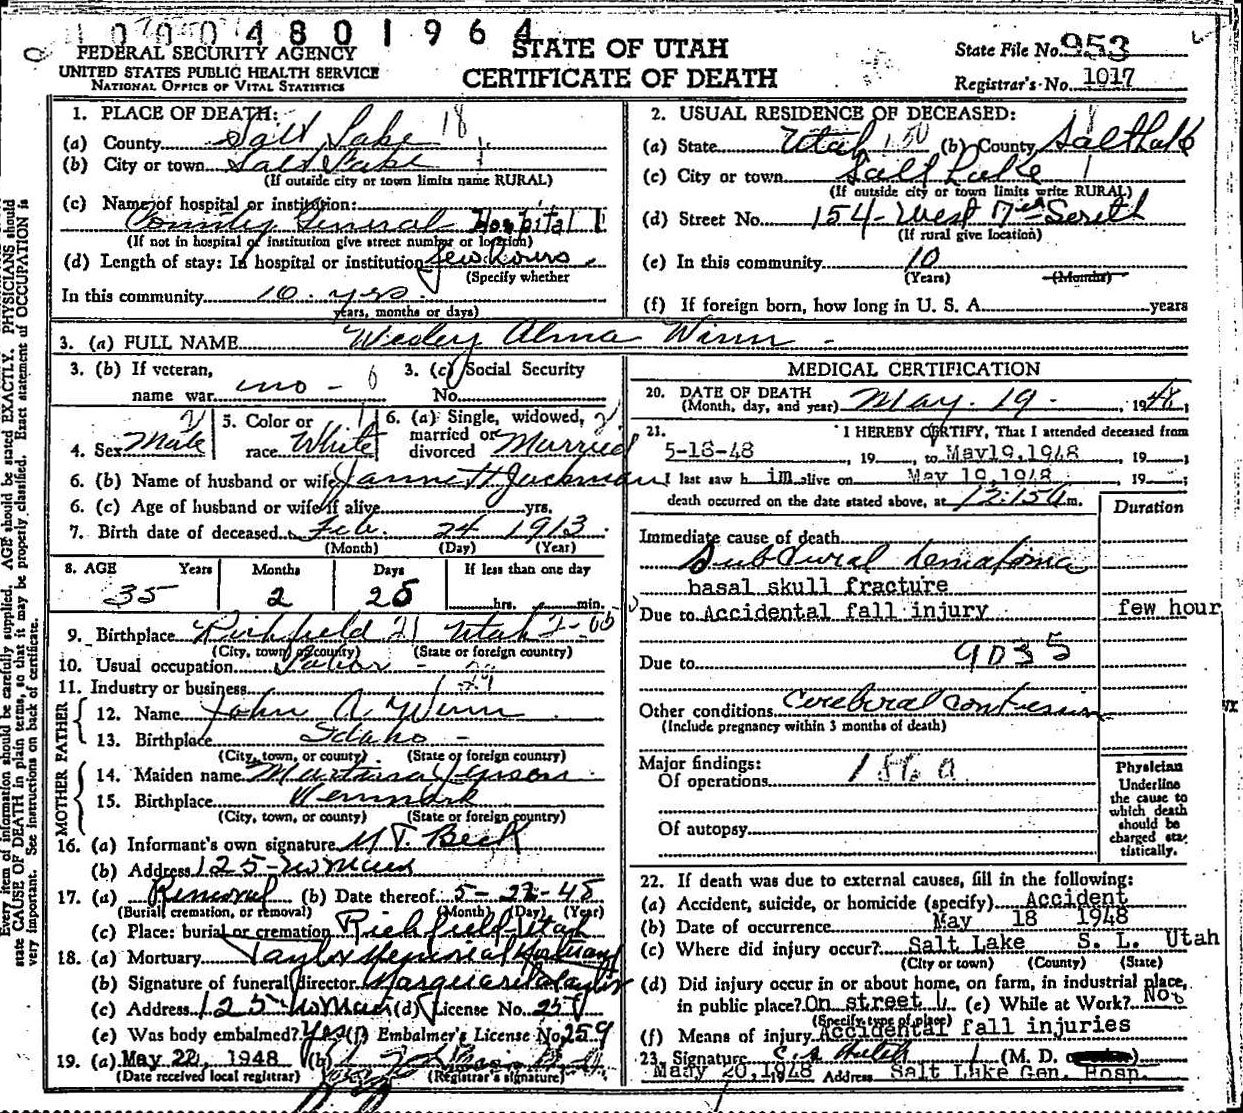 4801964
FEDERAL SECURITY AGENCY
UNITED STATES PUBLIC HEALTH SERVICE
NATIONAL OFFICE OF VITAL STATISTICS
STATE OF UTAH
CERTIFICATE OF DEATH
State File No. 953
Registrar's No. 1017
1. PLACE OF DEATH:
(a) County Salt Lake 18
(b) City or town Salt Lake
(If outside city or town limits name RURAL)
(c) Name of hospital or institution:
County General Hospital
(If not in hospital or institution give street number or location)
(d) Length of stay: In hospital or institution few hours
(Specify whether
In this community 10 yrs.
years, months or days)
2. USUAL RESIDENCE OF DECEASED:
(a) State Utah (b) County Salt Lake
(c) City or town Salt Lake
(If outside city or town limits write RURAL)
(d) Street No. 154 West 7th South
(If rural give location)
(e) In this community 10
(Years) (Months)
(f) If foreign born, how long in U. S. A. years
3. (a) FULL NAME Wesley Alma Winn
3. (b) If veteran,
name war no
3. (c) Social Security
No.
4. Sex Male
5. Color or
race White
6. (a) Single, widowed,
married or
divorced Married
6. (b) Name of husband or wife Jannett Jackman
6. (c) Age of husband or wife if alive yrs.
7. Birth date of deceased Feb. 24 1913
(Month) (Day) (Year)
8. AGE Years Months Days If less than one day
35 2 25 hrs. min.
9. Birthplace Richfield Utah
(City, town, or county) (State or foreign country)
10. Usual occupation Labor
11. Industry or business
FATHER
12. Name John A. Winn
13. Birthplace Idaho
(City, town, or county) (State or foreign country)
MOTHER
14. Maiden name
15. Birthplace Denmark
(City, town, or county) (State or foreign country)
16. (a) Informant's own signature M T. Beck
(b) Address 125 No Main
17. (a) Removal (b) Date thereof 5-22-48
(Burial, cremation, or removal) (Month) (Day) (Year)
(c) Place: burial or cremation Richfield Utah
18. (a) Mortuary Taylor Memorial Mortuary
(b) Signature of funeral director Taylor
(c) Address 125 No Main (d) License No. 257
(e) Was body embalmed? Yes (f) Embalmer's License No. 259
19. (a) May 22, 1948 (b)
(Date received local registrar) (Registrar's signature)
MEDICAL CERTIFICATION
20. DATE OF DEATH
(Month, day, and year) May 19 1948;
21. I HEREBY CERTIFY, That I attended deceased from
5-18-48, 19 , to May 19, 1948, 19 ;
I last saw h im alive on May 19, 1948, 19 ;
death occurred on the date stated above, at 12:15 a m.
Duration
Immediate cause of death
Subdural hematoma
basal skull fracture
Due to Accidental fall injury few hour
Due to 9035
Other conditions Cerebral contusion
(Include pregnancy within 3 months of death)
Major findings:
Of operations 186a
Of autopsy
Physician
Underline
the cause to
which death
should be
charged sta-
tistically.
22. If death was due to external causes, fill in the following:
(a) Accident, suicide, or homicide (specify) Accident
(b) Date of occurrence May 18 1948
(c) Where did injury occur? Salt Lake S. L. Utah
(City or town) (County) (State)
(d) Did injury occur in or about home, on farm, in industrial place,
in public place? On street (e) While at Work? No
(Specify type of place)
(f) Means of injury Accidental fall injuries
23. Signature (M. D.
May 20, 1948 Address Salt Lake Gen. Hosp.
Every item of information should be carefully supplied. AGE should be stated EXACTLY. PHYSICIANS should
state CAUSE OF DEATH in plain terms, so that it may be properly classified. Exact statement of OCCUPATION is
very important. See instructions on back of certificate.